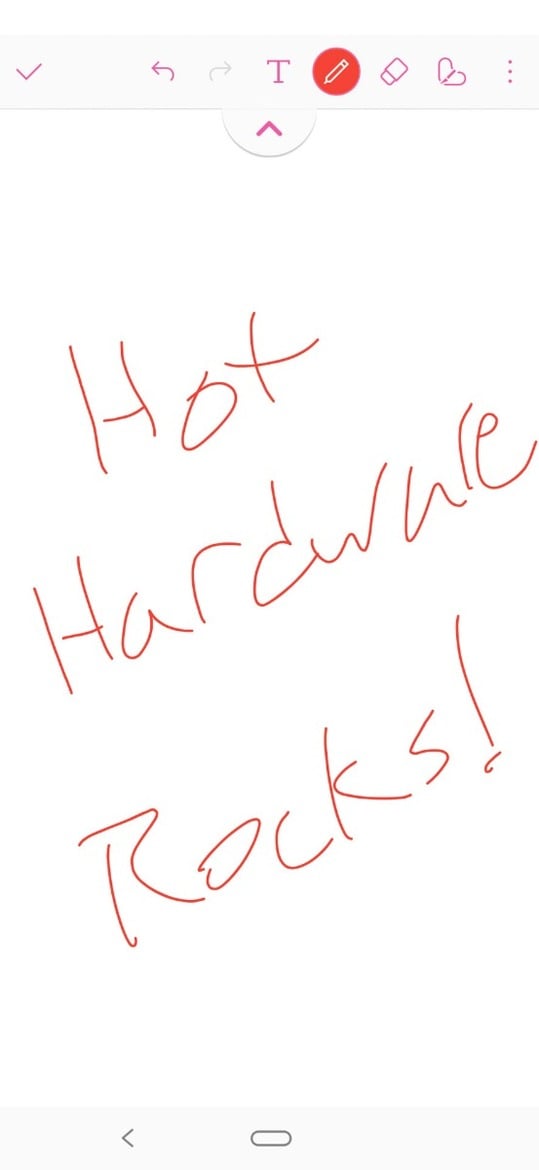 T
Hot
Hardware
Rocks!